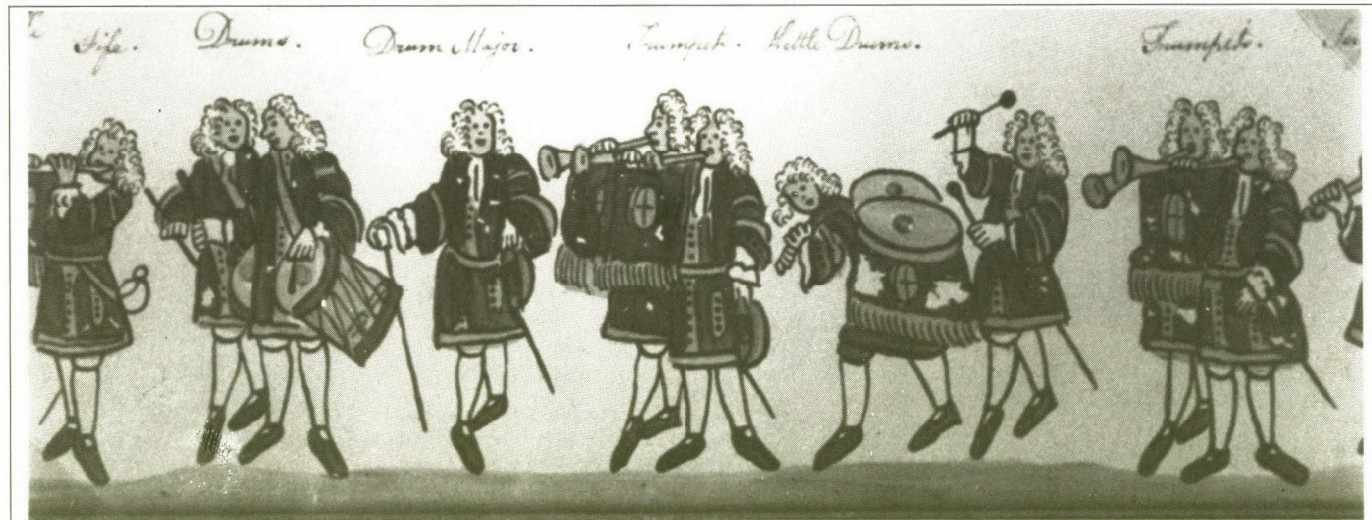 Fife. Drums. Drum Major. Trumpets. Kettle Drums. Trumpets.